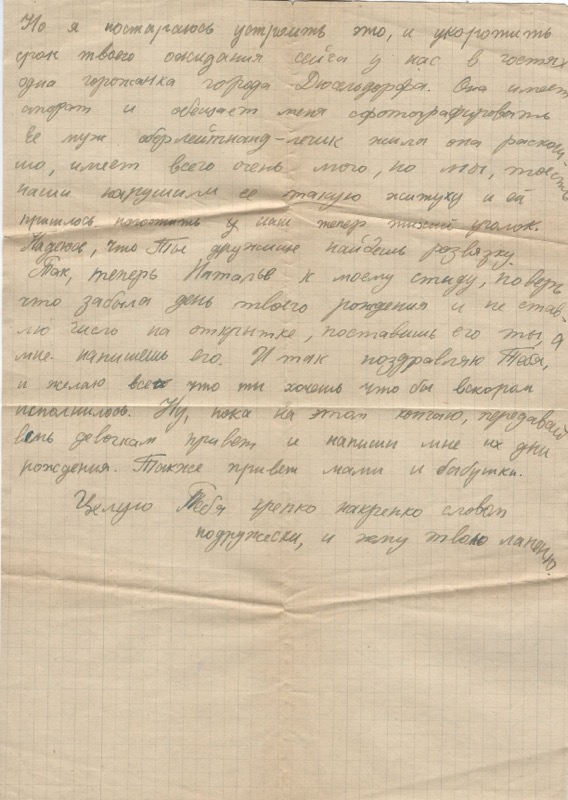 Но я постараюсь устроить это, и укоротить
срок твоего ожидания сейча у нас в гостях
одна горожанка города Дюсельдорфа. Она имеет
апарат и обещает меня сфотографировать
Ее муж оберлейтнанд-лечик жила она раскош-
мо, имеет всего очень мого, но мы, тоесть
наши нарушили ее такую житуху и ей
пришлось поготить у нас тепер тихий уголок.
Надеюсь, что Ты дружище найдешь розвязку.
Так, теперь Наталья к моему стиду, поверь
что забыла день твоего рождения и не став-
лю число на открытке, поставишь его ты, а
мне напишешь его. И так поздравляю Тебя,
и желаю все что ти хочешь что бы вскором
исполнилось. Ну, пока на этом кончаю, передавай
всем девочкам привет и напиши мне их дни
рождения. Также привет мами и бабушки.
Целую Тебя крепко накрепко словом
подружески, и жму твою лапеню.